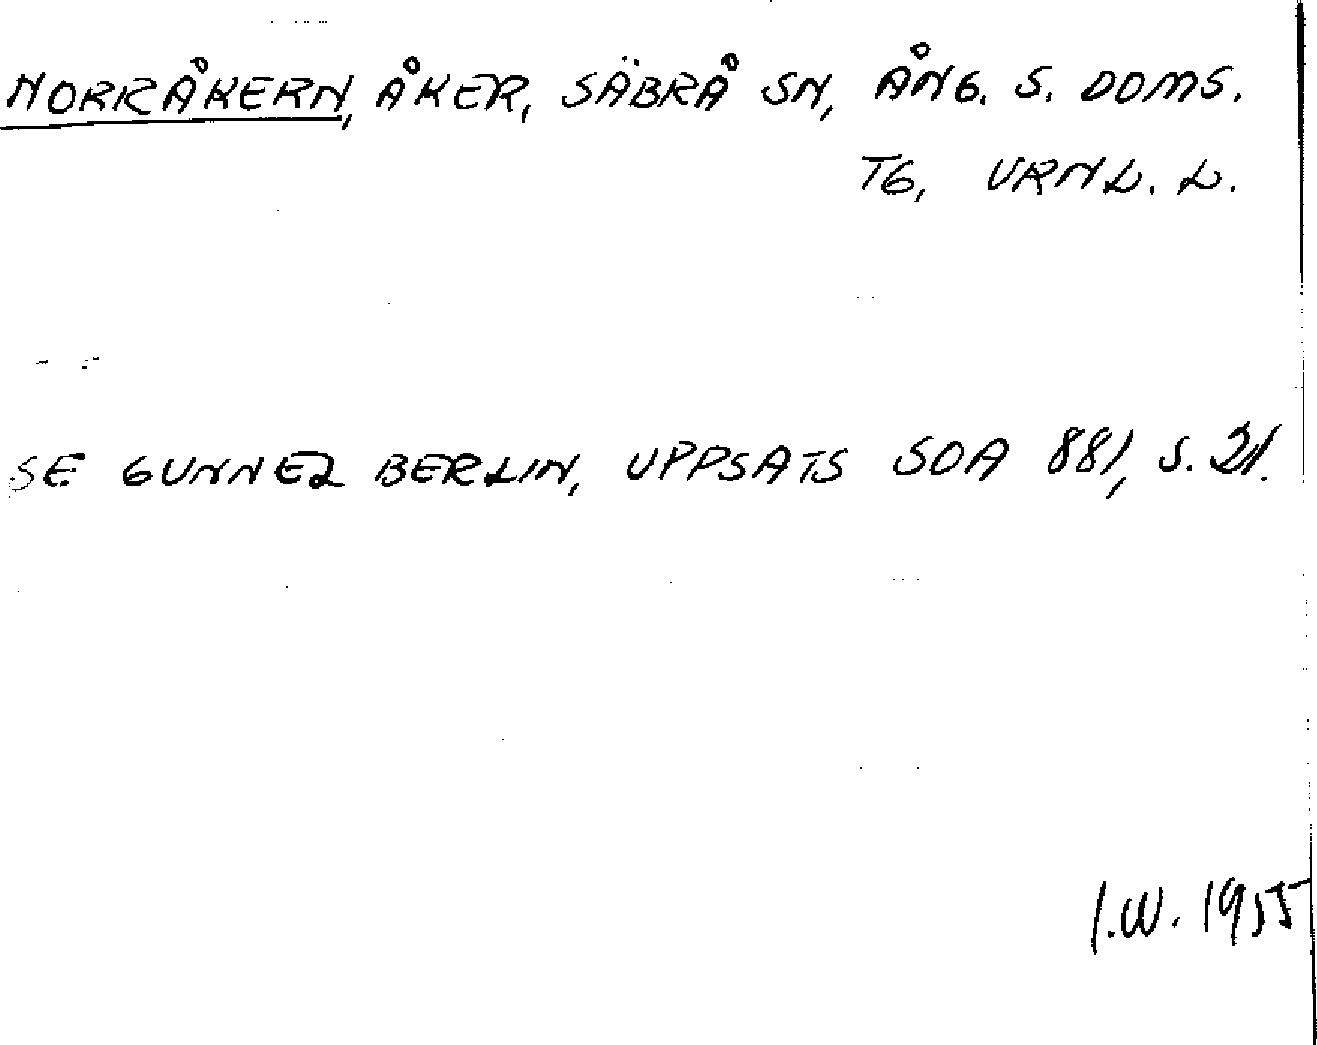 NORRÅKERN, ÅKER, SÄBRÅ SN, ÅNG. S. DOMS.
TG, VRNL. L.
SE GUNNEL BERLIN, UPPSATS SOA 881, S. 21.
I.W. 1955